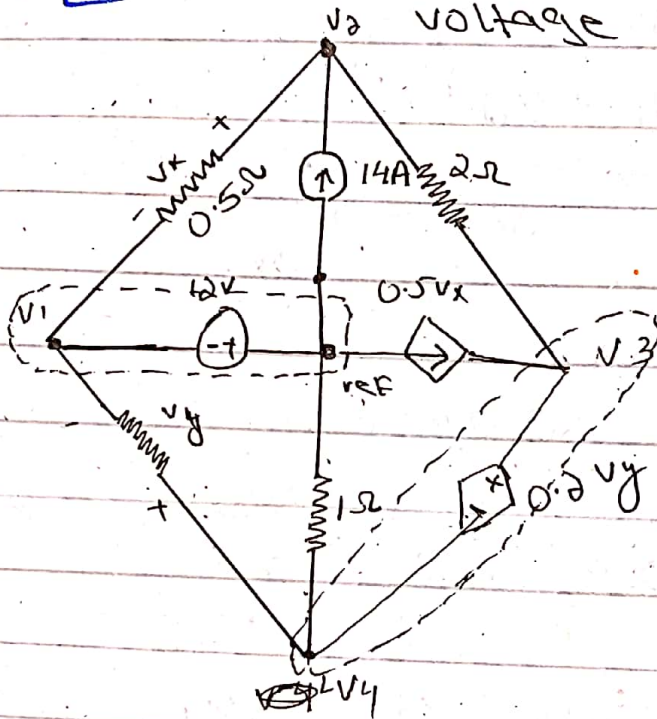 V2 voltage
+
Vx
-
0.5Ω
↑
14A
2Ω
12V
0.5Vx
V1
- +
→
V3
ref
Vy
+
1Ω
0.2Vy
V4